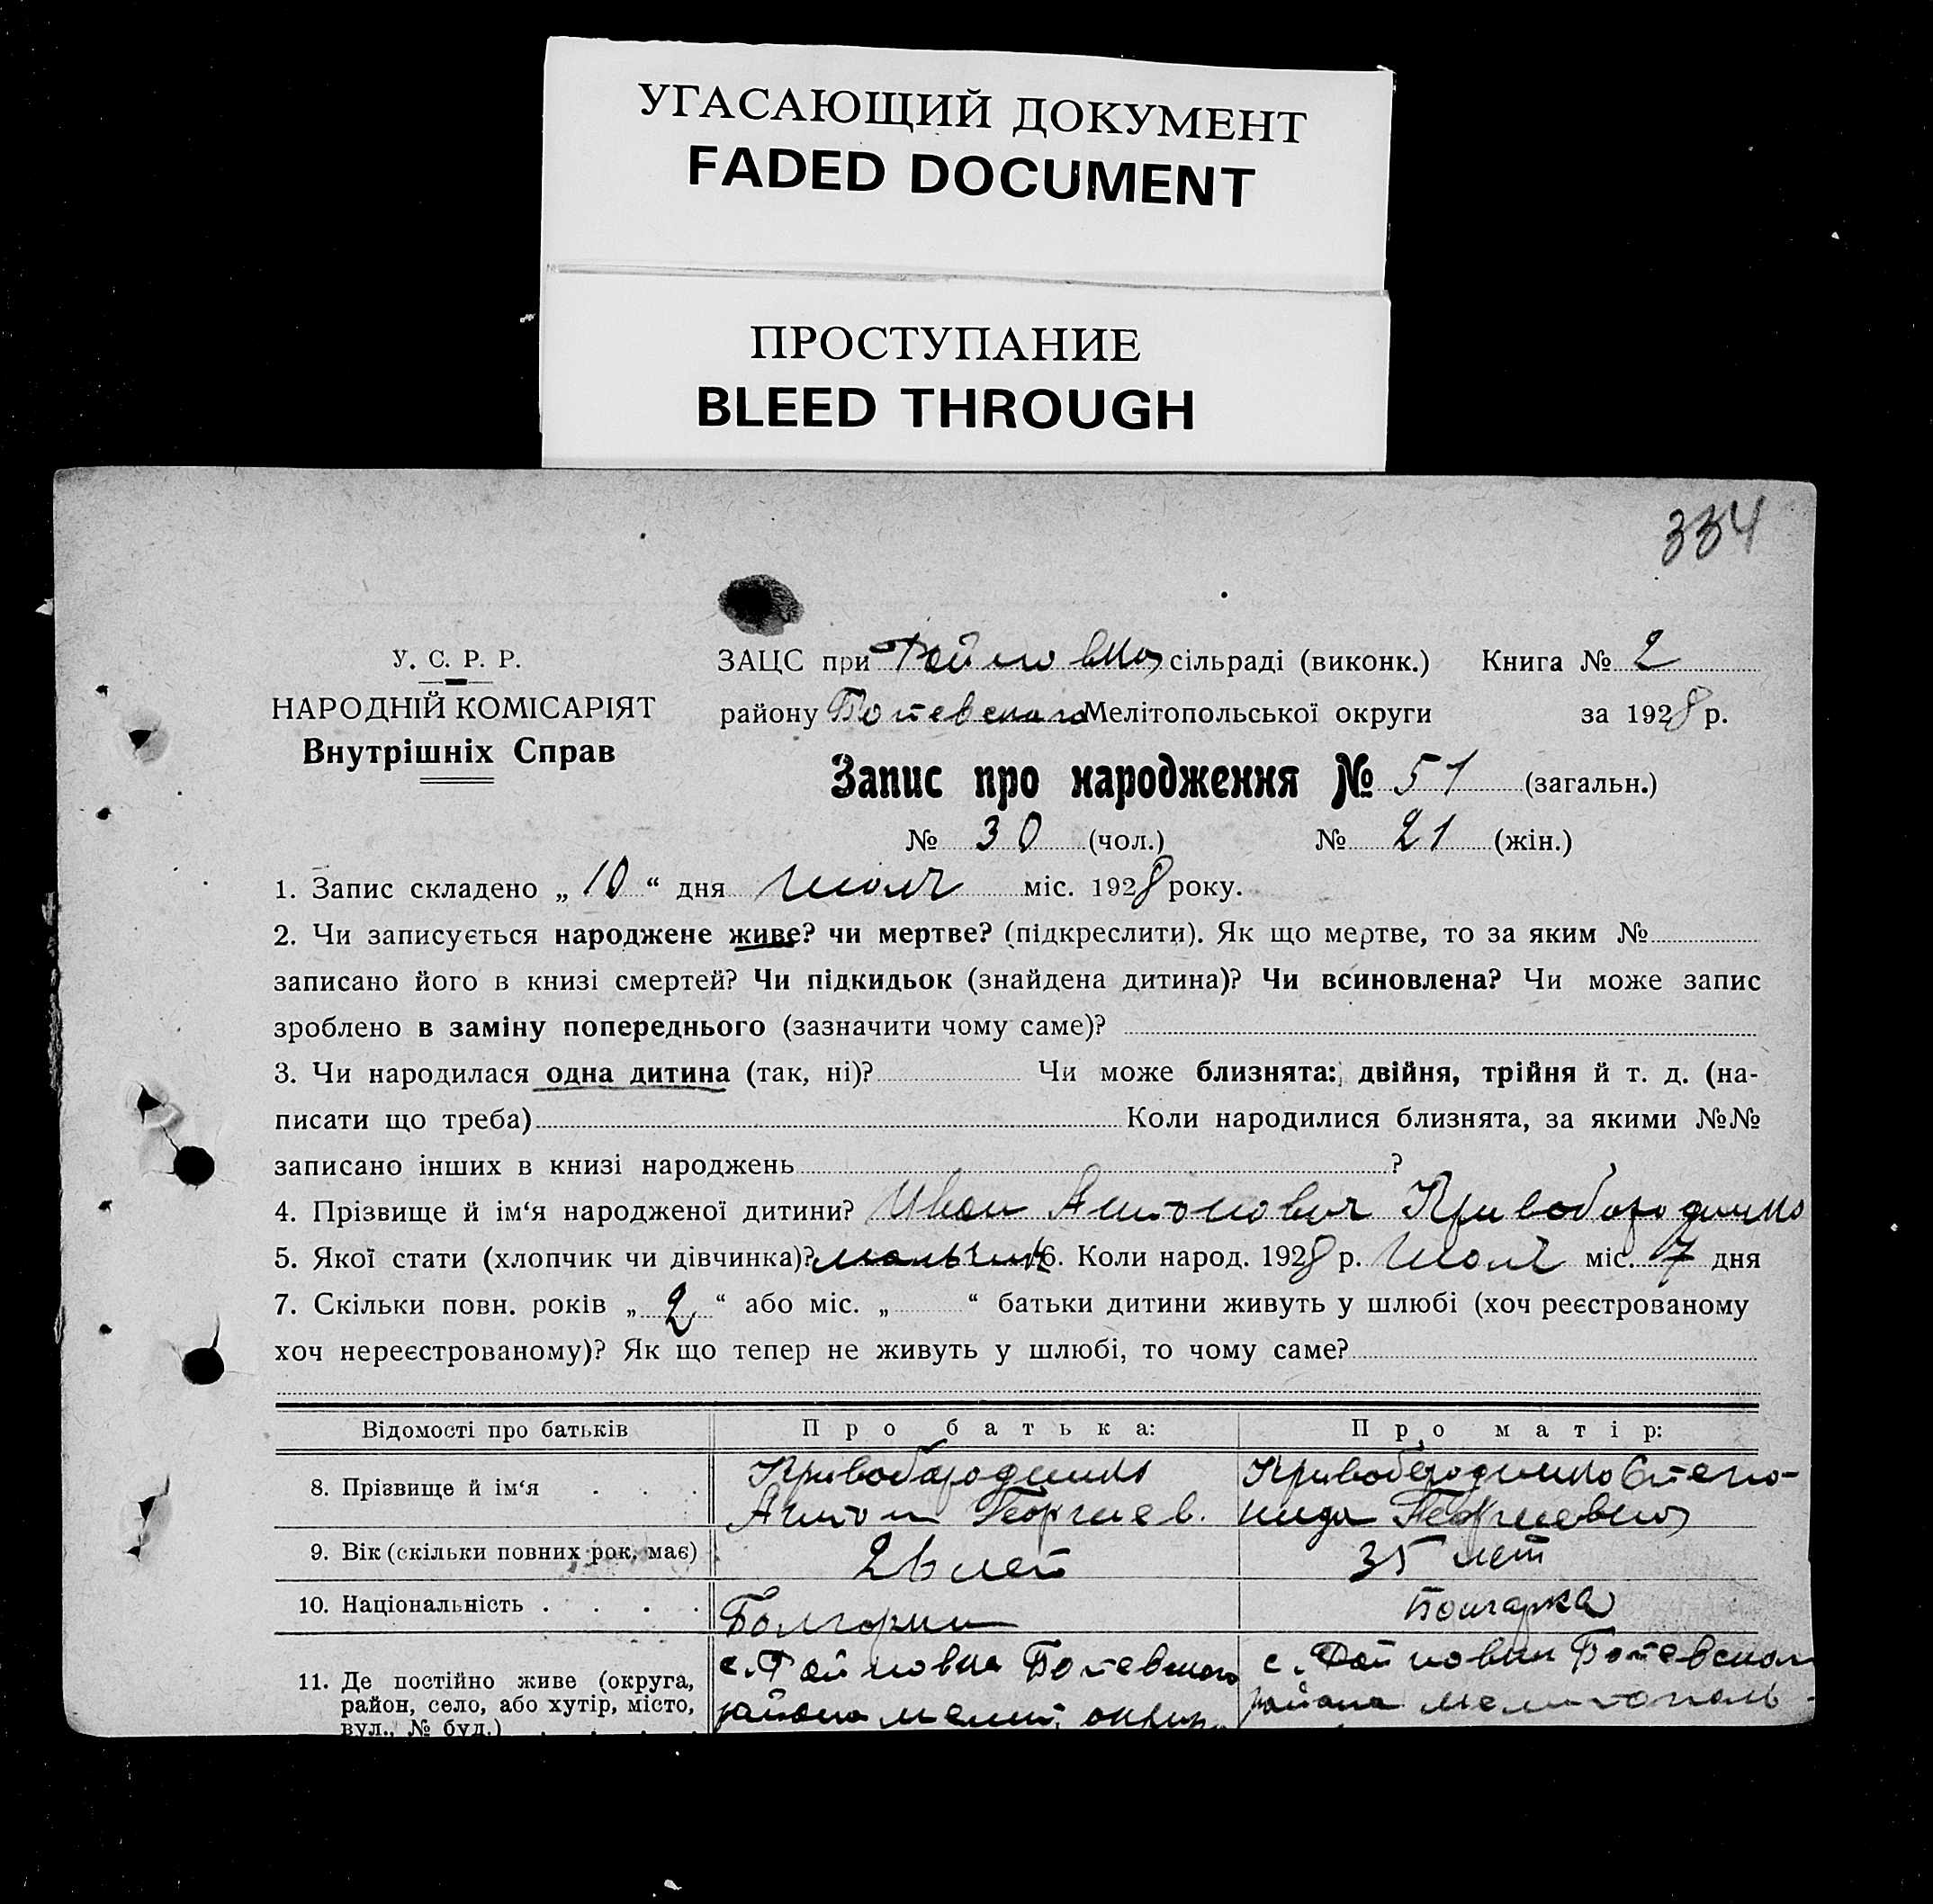 УГАСАЮЩИЙ ДОКУМЕНТ
FADED DOCUMENT
ПРОСТУПАНИЕ
BLEED THROUGH
334
У. С. Р. Р.
НАРОДНІЙ КОМІСАРІЯТ
Внутрішніх Справ
ЗАЦС при Райновка сільраді (виконк.) Книга № 2
району Ботевского Мелітопольської округи за 1928 р.
Запис про народження № 51 (загальн.)
№ 30 (чол.) № 21 (жін.)
1. Запис складено „ 10 “ дня июля міс. 1928 року.
2. Чи записується народжене живе? чи мертве? (підкреслити). Як що мертве, то за яким №
записано його в книзі смертей? Чи підкидьок (знайдена дитина)? Чи всиновлена? Чи може запис
зроблено в заміну попереднього (зазначити чому саме)?
3. Чи народилася одна дитина (так, ні)? Чи може близнята: двійня, трійня й т. д. (на-
писати що треба) Коли народилися близнята, за якими №№
записано інших в книзі народжень ?
4. Прізвище й ім‘я народженої дитини? Иван Антонович Кривобородинко
5. Якої стати (хлопчик чи дівчинка)? мальчик 6. Коли народ. 1928 р. июля міс. 7 дня
7. Скільки повн. років „ 2 “ або міс. „ “ батьки дитини живуть у шлюбі (хоч реєстрованому
хоч нереєстрованому)? Як що тепер не живуть у шлюбі, то чому саме?
Відомості про батьків Про батька: Про матір:
8. Прізвище й ім‘я Кривобородинко Кривобородинко Степа-
Антон Георгиев. нида Георгиевна
9. Вік (скільки повних рок. має) 26 лет 35 лет
10. Національність Болгорин Болгарка
11. Де постійно живе (округа, с. Райновка Ботевского с. Райновки Ботевского
район, село, або хутір, місто, района мелит. округ. района мелитополь-
вул., № буд.)